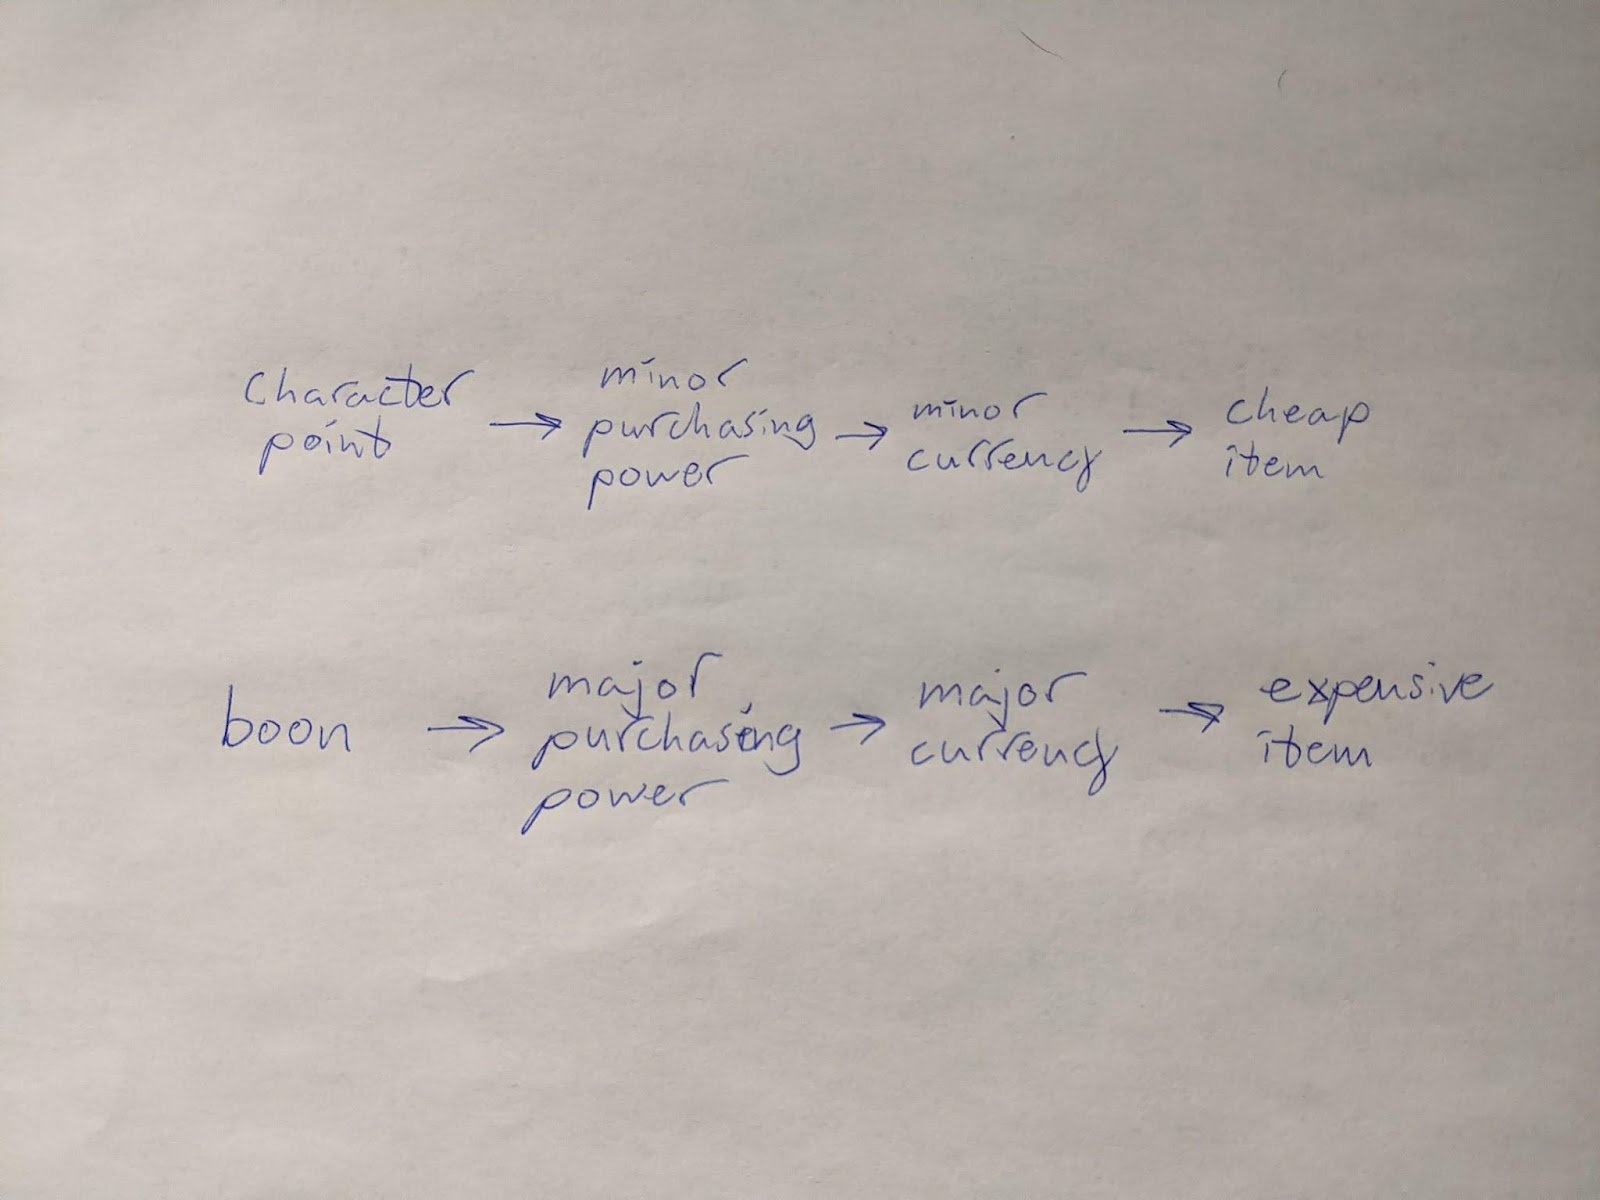 character
point
→
minor
purchasing
power
→
minor
currency
→
cheap
item
boon
→
major
purchasing
power
→
major
currency
→
expensive
item